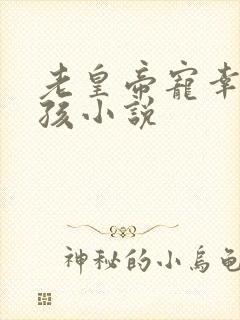 老皇帝寵幸
孩小說
神秘的小烏龜